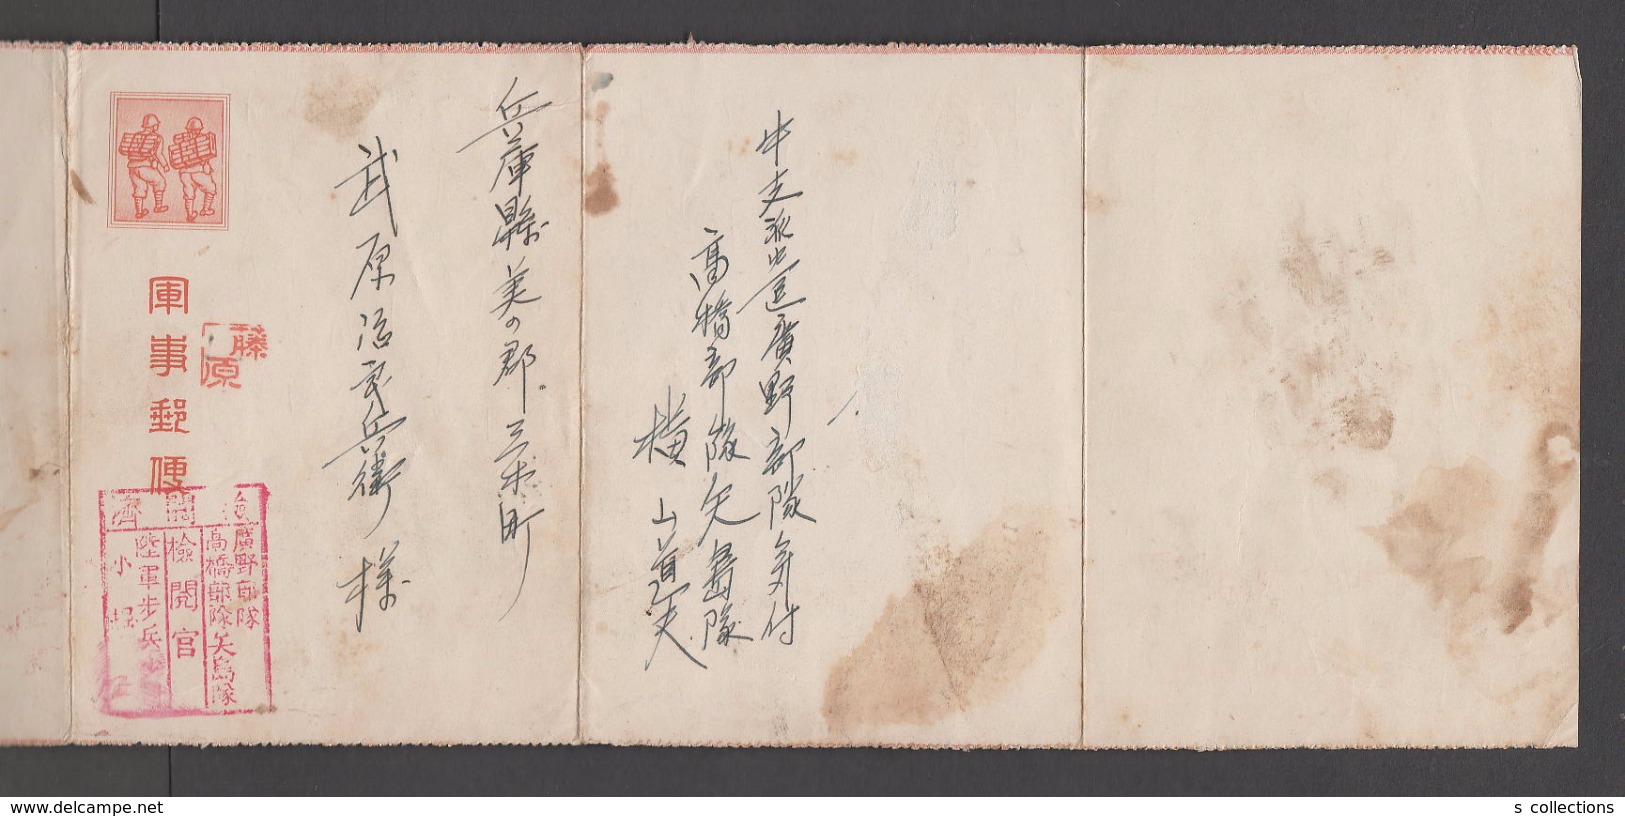 兵庫縣美の郡三木町
武原治郎兵衛様
中支派遣廣野部隊気付
高橋部隊矢島隊
横山道夫
軍事郵便
藤原
検閲済
廣野部隊
高橋部隊矢島隊
檢閲官
陸軍歩兵少
小堀
s collections
www.delcampe.net